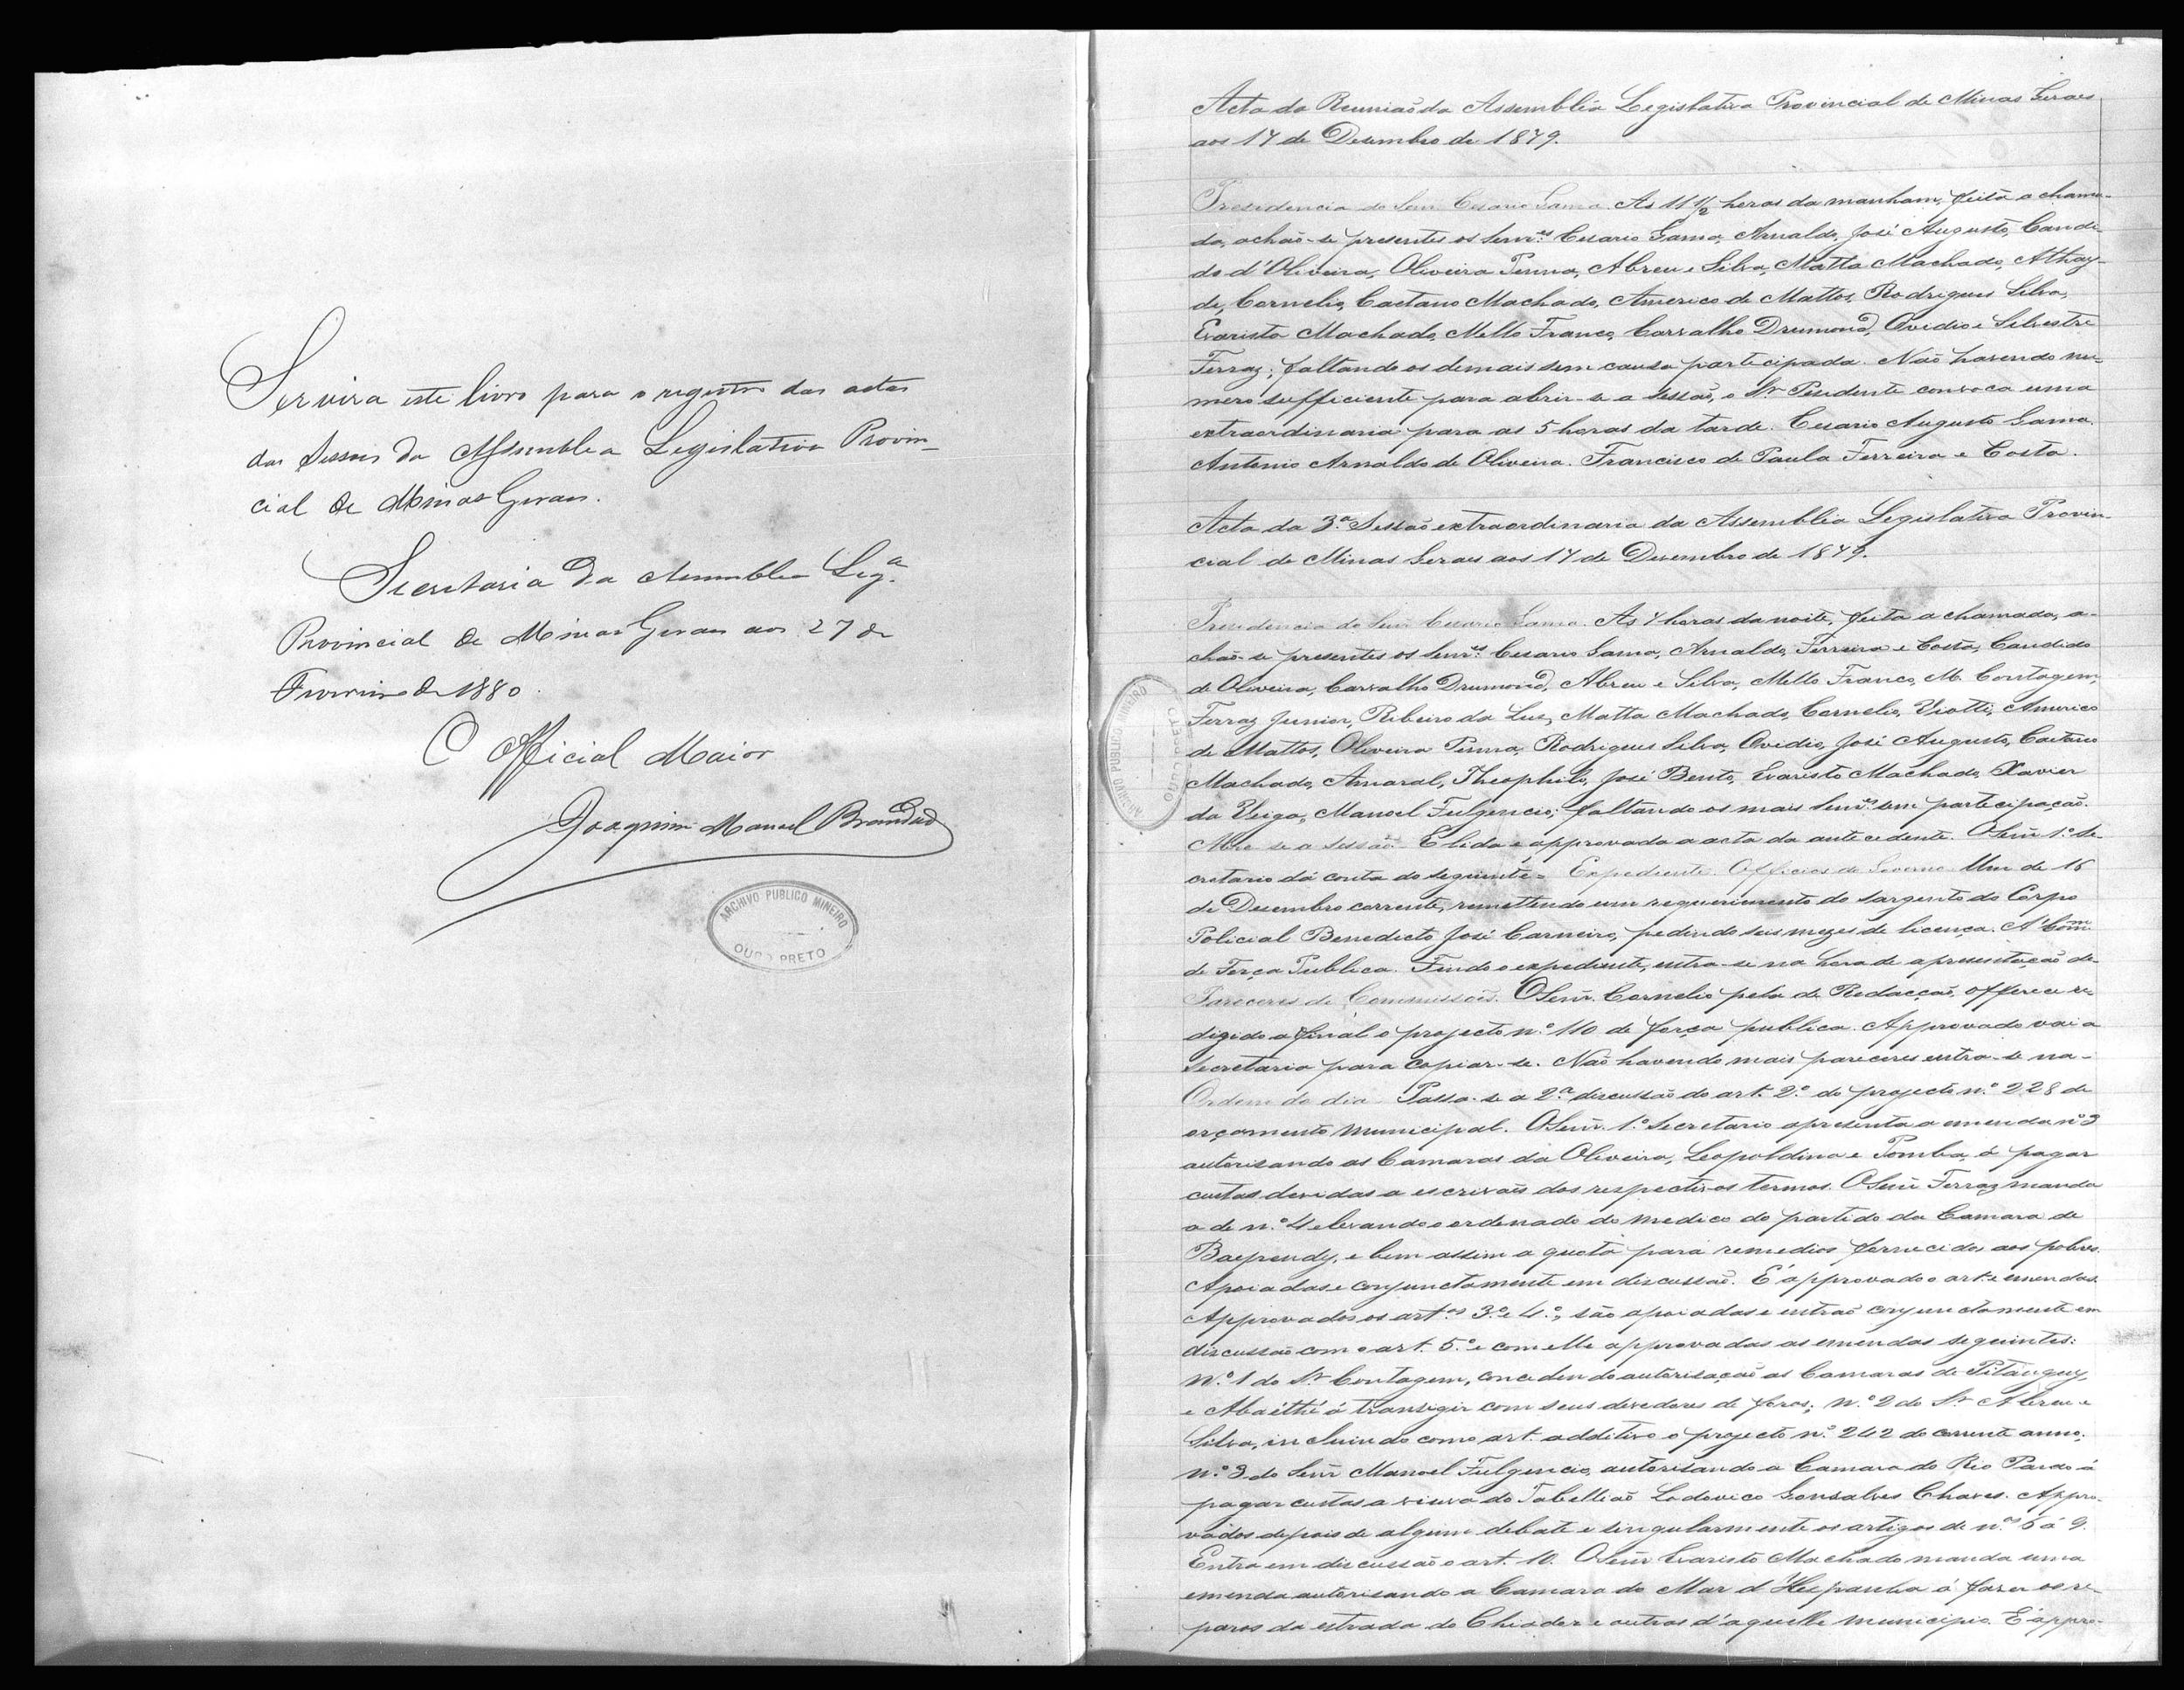 Servirá este livro para o registro das actas
das sessões da Assemblea Legislativa Provin-
cial de Minas Geraes.
Secretaria da Assemblea Leg.a
Provincial de Minas Geraes aos 27 de
Fevereiro de 1880.
O Official Maior
Joaquim Manoel Brandão
ARCHIVO PUBLICO MINEIRO
OURO PRETO
Acta da Reunião da Assembléa Legislativa Provincial de Minas Geraes
aos 17 de Desembro de 1879.
Presidencia do Senr. Cesario Gama. As 11 1/2 horas da manham, feita a chama-
da, achão-se presentes os Senr.es Cesario Gama, Arnaldo, José Augusto, Candi-
do d'Oliveira, Oliveira Penna, Abreu e Silva, Matta Machado, Athay-
de, Cornelio, Caetano Machado, Americo de Mattos, Rodrigues Silva,
Evaristo Machado, Mello Franco, Carvalho Drumond, Ovidio e Silvestre
Ferraz; faltando os demais sem causa participada. Não havendo nu-
mero sufficiente para abrir-se a sessão, o Sr. Presidente convoca uma
extraordinaria para as 5 horas da tarde. Cesario Augusto Gama.
Antonio Arnaldo de Oliveira. Francisco de Paula Ferreira e Costa.
Acta da 3.a Sessão extraordinaria da Assembléa Legislativa Provin-
cial de Minas Geraes aos 17 de Desembro de 1879.
Presidencia do Senr. Cesario Gama. As 7 horas da noite, feita a chamada, a-
chão-se presentes os Senr.es Cesario Gama, Arnaldo, Ferreira e Costa, Candido
de Oliveira, Carvalho Drumond, Abreu e Silva, Mello Franco, M. Contagem,
Ferraz Junior, Ribeiro da Luz, Matta Machado, Cornelio, Viotti, Americo
de Mattos, Oliveira Penna, Rodrigues Silva, Ovidio, José Augusto, Caetano
Machado, Amaral, Theophilo, José Bento, Evaristo Machado, Xavier
da Veiga, Manoel Fulgencio; faltando os mais Senr.es sem participação.
Abre-se a sessão. É lida e approvada a acta da antecedente. O Senr. 1.o Se-
cretario dá conta do seguinte= Expediente. Officios do Governo. Um de 16
de Desembro corrente, remettendo um requerimento do sargento do Corpo
Policial Benedicto José Carneiro, pedindo seis mezes de licença. A' Com.m
de Força Publica. Findo o expediente, entra-se na hora de apresentação de
Pareceres de Commissões. O Senr. Cornelio pela de Redacção, offerece re-
digido a final o projecto n.o 110 de força publica. Approvado vai a
Secretaria para copiar-se. Não havendo mais pareceres entra-se na-
Ordem do dia. Passa-se a 2.a discussão do art. 2.o do projecto n.o 228 de
orçamento municipal. O Senr. 1.o Secretario apresenta a emenda n.o 3
autorisando as Camaras da Oliveira, Leopoldina e Pomba, á pagar
custas devidas a escrivães dos respectivos termos. O Senr. Ferraz manda
a de n.o 4 elevando o ordenado do medico do partido da Camara de
Baependy, e bem assim a quota para remedios fornecidos aos pobres.
Apoiadas e conjunctamente em discussão. É approvado o art. e emendas.
Approvados os art.os 3.o e 4.o, são apoiadas e entrão conjunctamente em
discussão com o art. 5.o e com elle approvadas as emendas seguintes:
N.o 1 do Sr. Contagem, concedendo autorisação as Camaras de Pitanguy,
e Abaethé á transigir com seus devedores de foros; N.o 2 do Sr. Abreu e
Silva, incluindo como art. additivo o projecto n.o 242 do corrente anno;
N.o 3 do Senr. Manoel Fulgencio, autorisando a Camara do Rio Pardo á
pagar custas a viuva do Tabellião Lodovico Gonsalves Chaves. Appro-
vados depois de algum debate e singularmente os artigos de n.os 6 á 9.
Entra em discussão o art. 10. O Senr. Evaristo Machado manda uma
emenda autorisando a Camara do Mar d'Hespanha á fazer os re-
paros da estrada do Chiador e outras d'aquelle municipio. É appro-
ARCHIVO PUBLICO MINEIRO
OURO PRETO